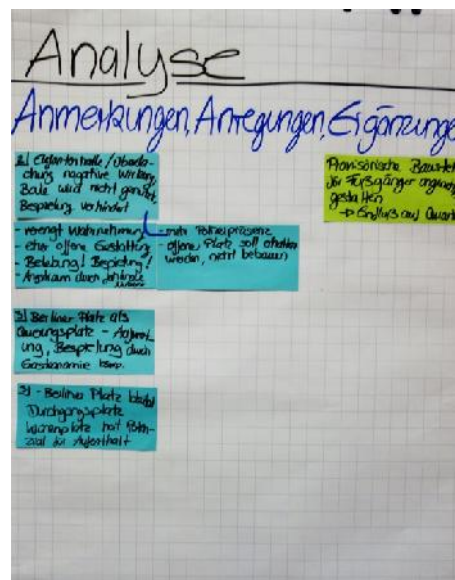 Analyse
Anmerkungen, Anregungen, Ergänzunge
2.) /Überda-
chung negative Wirkung,
wird nicht genutzt,
Bespielung verhindert
- verengt Wahrnehmung
- eher offene Gestaltung
- Belebung! Bespielung!
- durch
- mehr Polizeipräsenz
- offener Platz soll erhalten
werden, nicht bebauen
Provisorische Baustellen
für Fußgänger
gestalten
→ Einfluß auf Quart
Berliner Platz als
platz -
ung, Bespielung durch
Gastronomie
3) - Berliner Platz bleibt
Durchgangsplatz
platz hat Poten-
zial für Aufenthalt